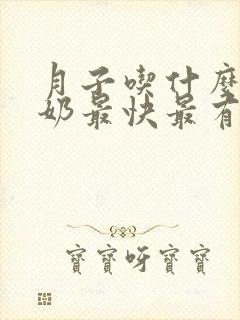 月子喫什麼
奶最快最有
寶寶呀寶寶